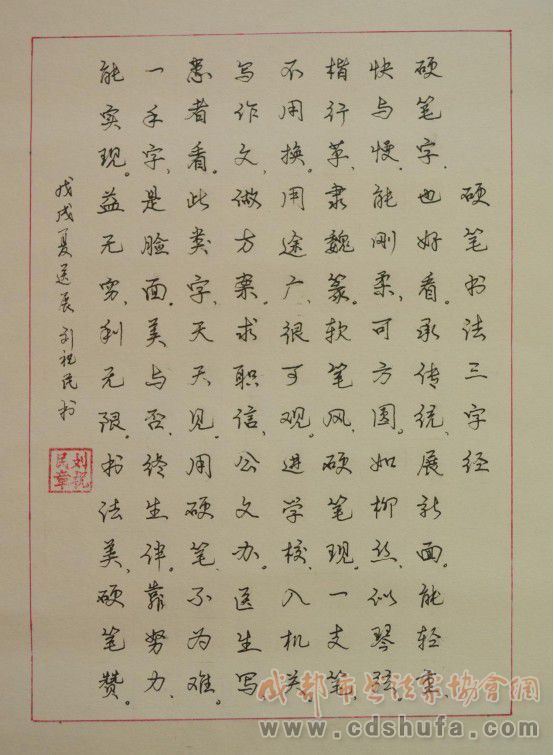 硬笔书法三字经
硬笔字，也好看。承传统，展新面。能轻重，
快与慢，能刚柔，可方圆。如柳丝，似琴弦。
楷行草，隶魏篆。软笔风，硬笔现。一支笔，
不用换。用途广，很可观。进学校，入机关。
写作文，做方案。求职信，公文办。医生写，
患者看。此类字，天天见。用硬笔，不为难。
一手字，是脸面。美与否，终生伴。靠努力，
能实现。益无穷，利无限。书法美，硬笔赞。
戊戌夏送展刘祝民书
刘祝民章
成都市书法家协會網
www.cdshufa.com